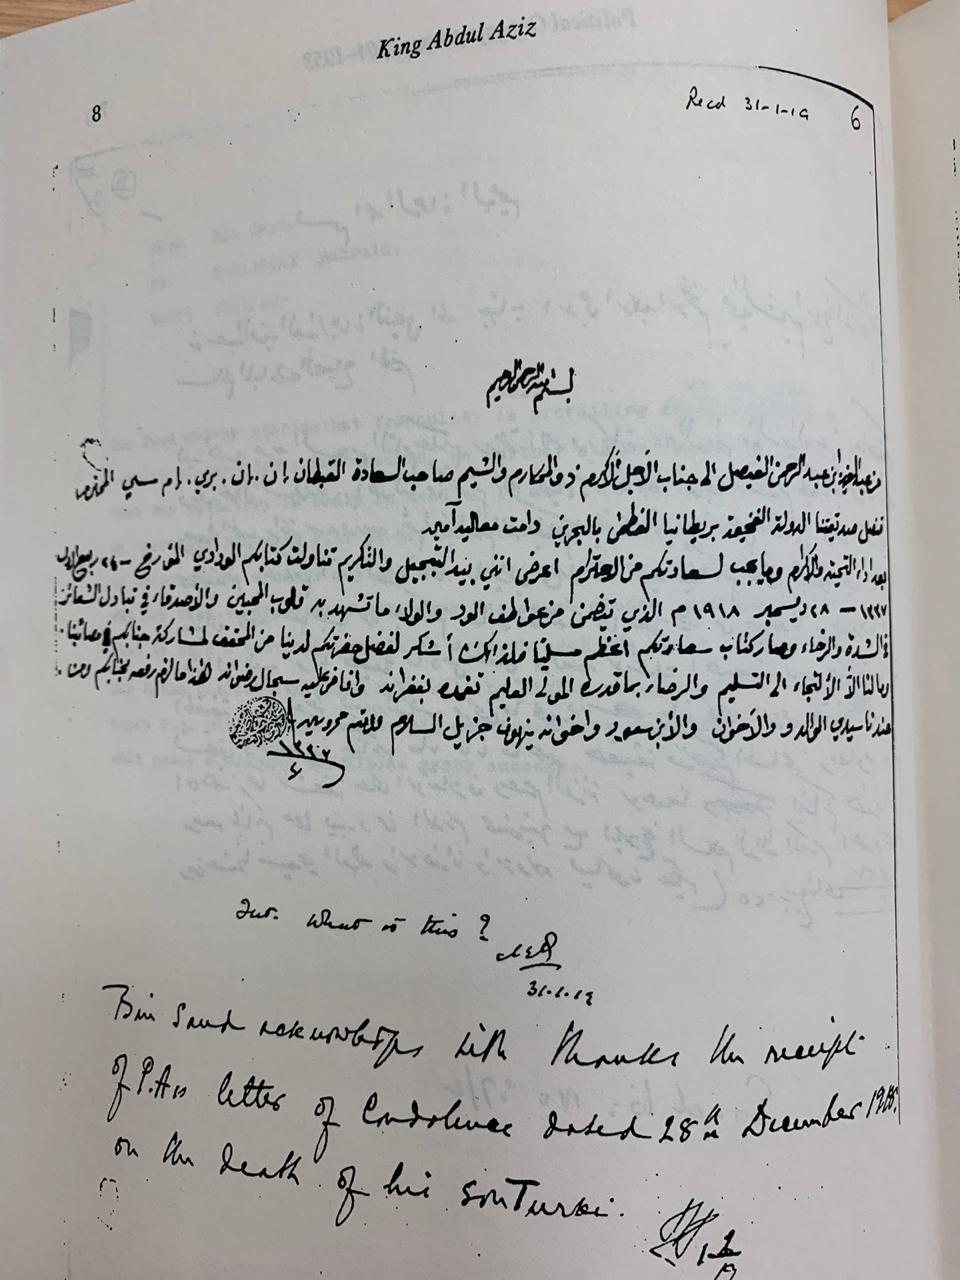 King Abdul Aziz
8
Recd 31-1-19
6
بسم الله الرحمن الرحيم
من عبد العزيز ابن عبد الرحمن الفيصل الى جناب الأجل الأكرم ذو المكارم والشيم صاحب السعادة القبطان إن. إن. بري. إم سي المحترم
قنصل صديقتنا الدولة الفخيمة بريطانيا العظمى بالبحرين دامت معاليه آمين
بعد اداء التحية والاكرام وما يجب لسعادتكم من الاحترام اعرض انني بيد التبجيل والتكريم تناولت كتابكم الودادي المؤرخ ٢٤ ربيع الاول
١٣٣٧ – ٢٨ ديسمبر ١٩١٨ م الذي تضمن من عواطف الود والولاء ما تشهد به قلوب المحبين والأصدقاء في تبادل الشعائر
في الشدة والرخاء وصار كتاب سعادتكم اعظم مسلياً فلذالك أشكر لفضل حضرتكم لدينا من المخفف لمشاركة جنابكم في مصائبنا
وما لنا الا الألتجاء الى التسليم والرضاء بما قدره المولى العليم تغمده بغفرانه وافاض عليه سجال رضوانه هذا ما لزم رفعه لجنابكم ومن
عندنا سيدي الوالد والأخوان والأبن سعود واخوانه ينهون جزيل السلام ودمتم محروسين
١٣٣٧
٤
What is this?
31.1.19
Bin Saud acknowledges with thanks the receipt
of P.A's letter of Condolence dated 28th December 1918,
on the death of his son Turki.